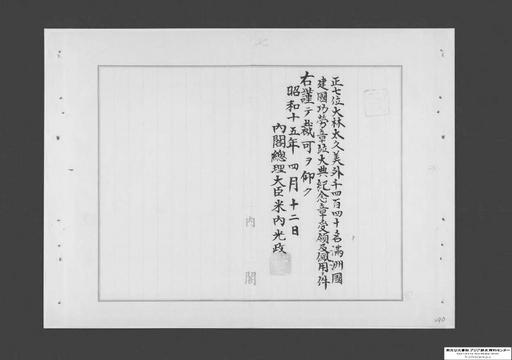 正七位大林太久美外千四百四十名満洲國
建國功労章竝大典紀念章受領及佩用ノ件
右謹テ裁可ヲ仰ク
昭和十五年四月十二日
内閣總理大臣米内光政
内閣